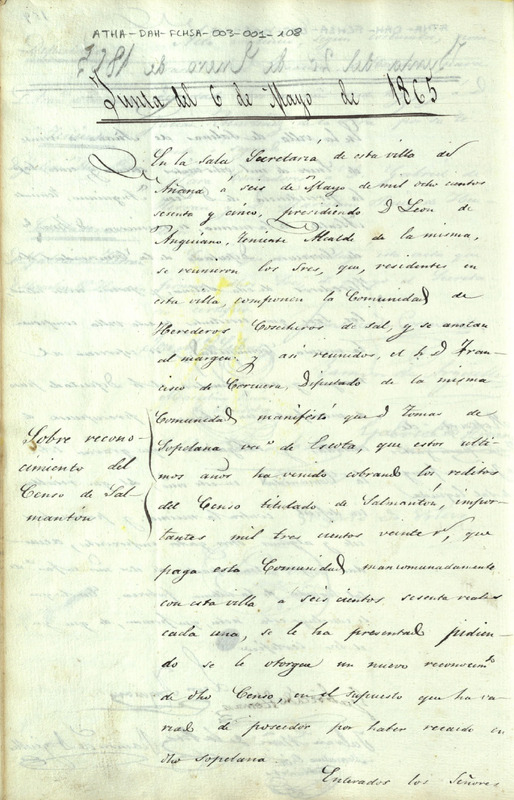 ATHA-DAH-FCHSA-003-001-108
Junta del 6 de Mayo de 1865
En la Sala Secretaría de esta villa de
Añana á seis de Mayo de mil ocho cientos
sesenta y cinco, presidiendo D Leon de
Anguiano, Teniente Alcalde de la misma,
se reunieron los Sres, que, residentes en
esta villa, componen la Comunidad de
Herederos Cosecheros de Sal, y se anotan
al margen y asi reunidos, el Sr D Fran-
cisco de Corcuera, Diputado de la misma
Comunidad manifestó que D Tomas de
Sopelana veco. de Escota, que estos ulti-
mos años ha venido cobrando los reditos
del Censo titulado de Salmantón, impor-
tantes mil tres cientos veinte r.s, que
paga esta Comunidad mancomunadamente
con esta villa á seis cientos sesenta reales
cada una, se le ha presentado pidien-
do se le otorgue un nuevo reconocim.to
de dho Censo, en el supuesto que ha va-
riado de poseedor por haber recaido en
dho Sopelana.
Enterados los Señores
Sobre recono-
cimiento del
Censo de Sal
mantón